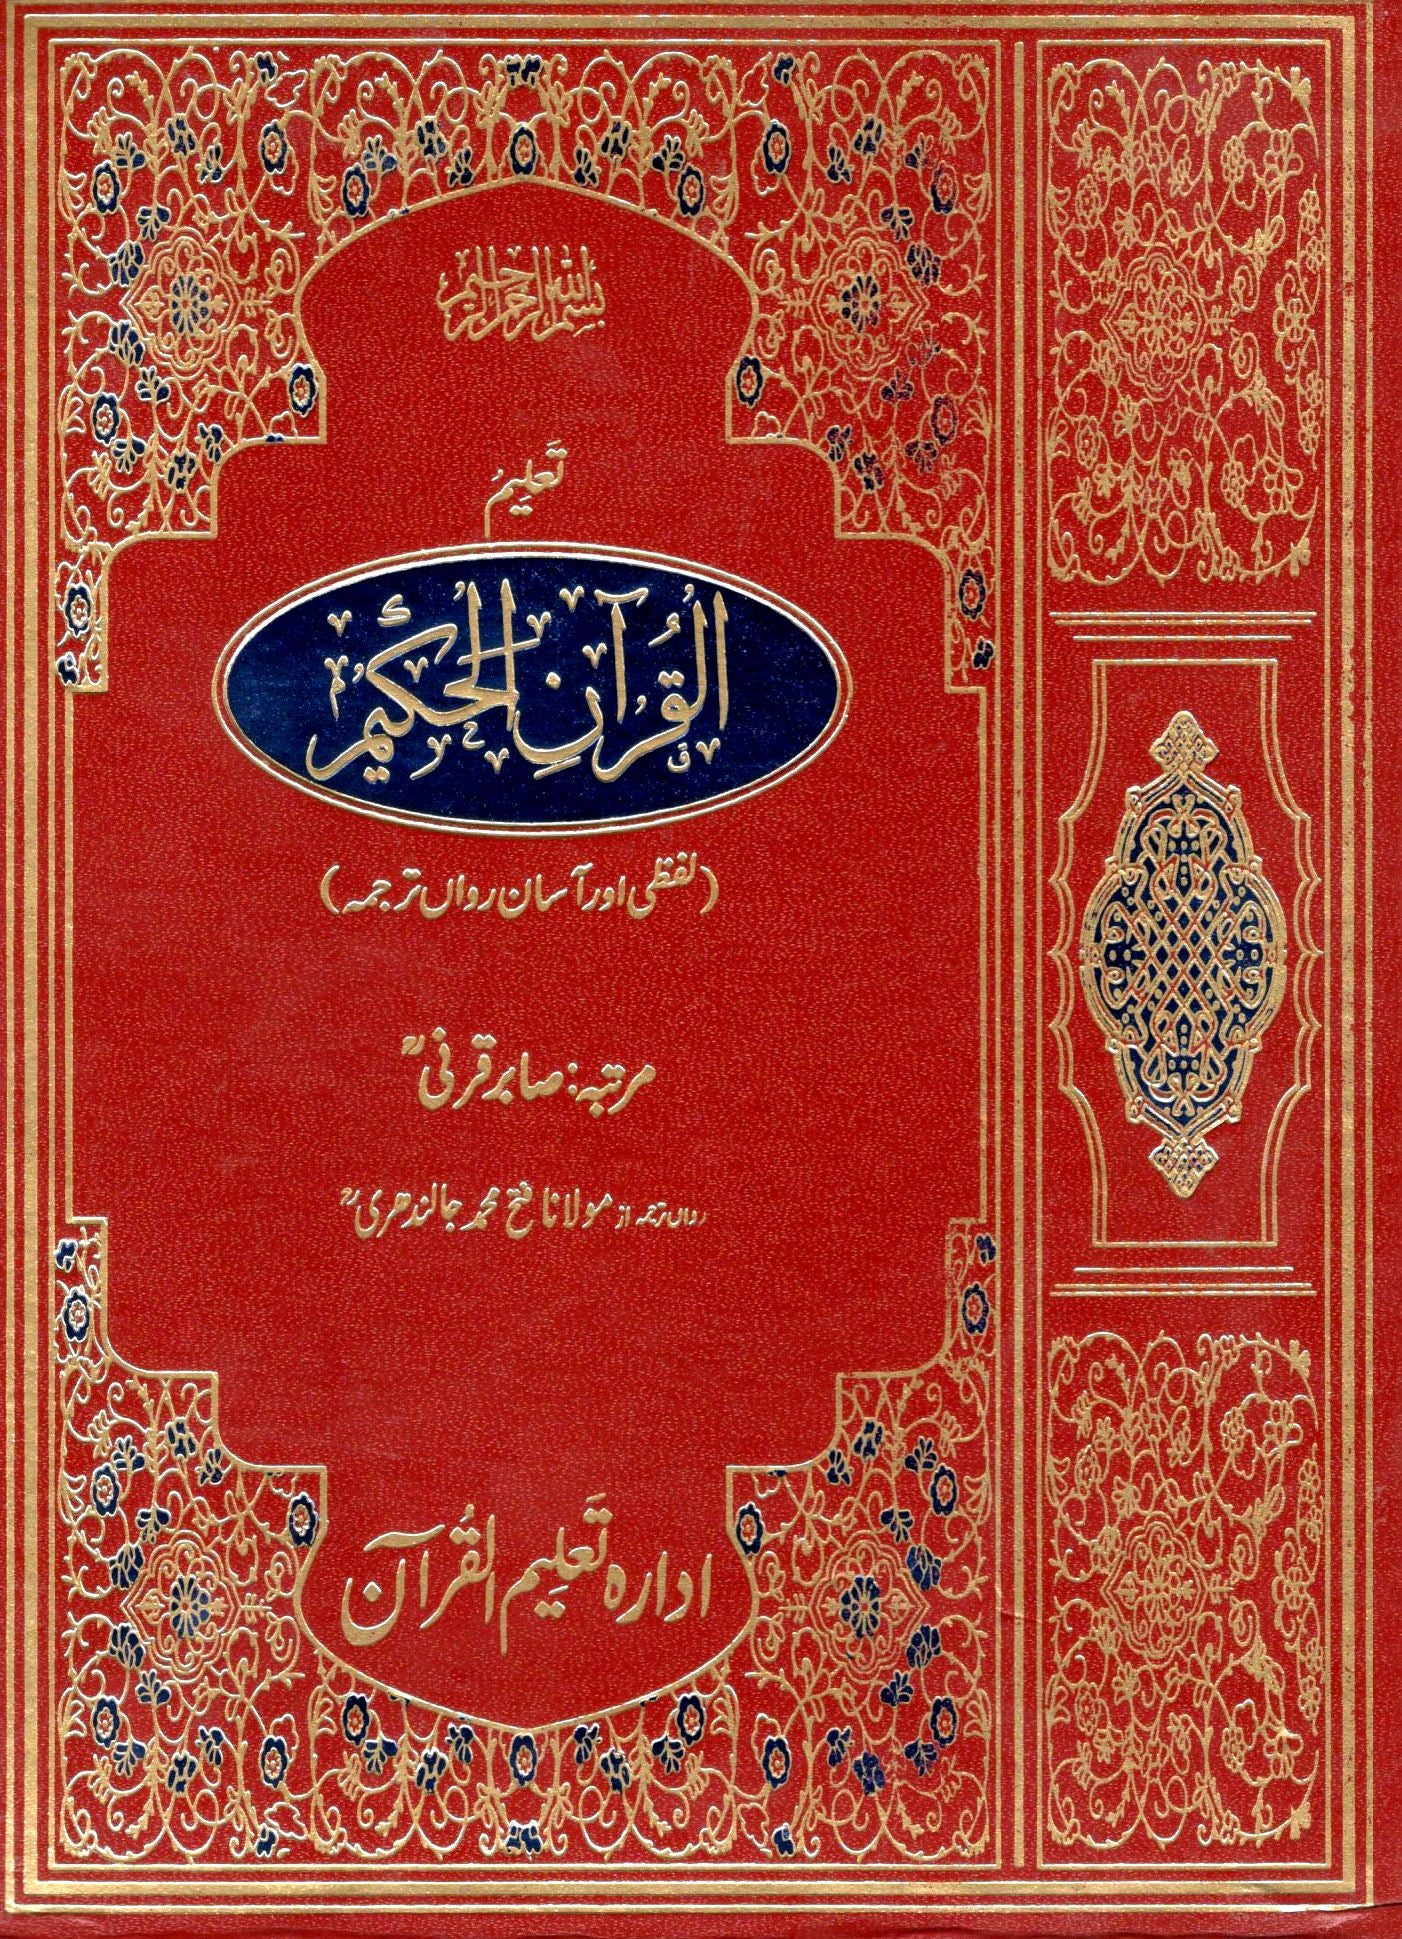 بسم الله الرحمن الرحیم
تعلیم
القرآن الحکیم
(لفظی اور آسان رواں ترجمہ)
مرتبہ: صابر قرنیؒ
رواں ترجمہ از مولانا فتح محمد جالندھریؒ
ادارہ تعلیم القرآن